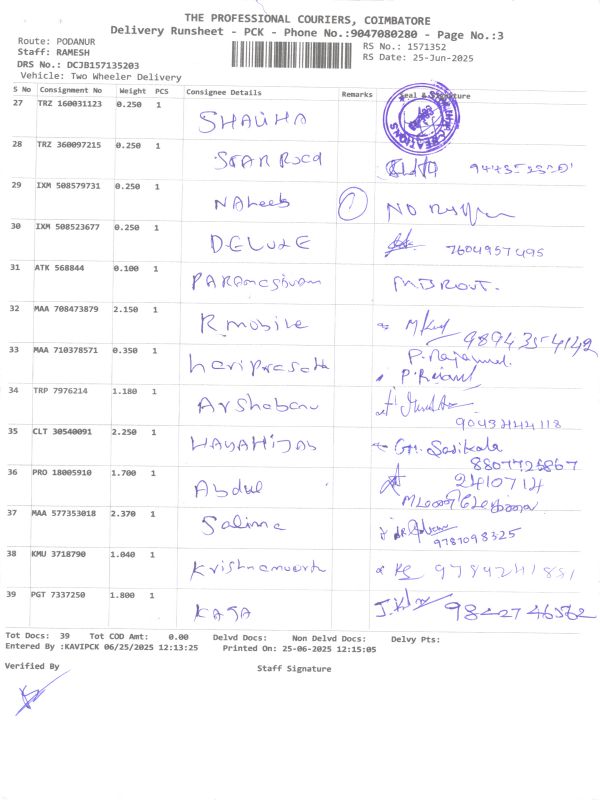 THE PROFESSIONAL COURIERS, COIMBATORE
Delivery Runsheet - PCK - Phone No.:9047080280 - Page No.:3
Route: PODANUR
Staff: RAMESH
DRS No.: DCJB157135203
Vehicle: Two Wheeler Delivery
RS No.: 1571352
RS Date: 25-Jun-2025
S No Consignment No Weight PCS Consignee Details Remarks Seal & Signature
27 TRZ 160031123 0.250 1 SHALIHA
28 TRZ 360097215 0.250 1 STAR
29 IXM 508579731 0.250 1 NAheeb 1 NO
30 IXM 508523677 0.250 1 DELUXE 7604957495
31 ATK 568844 0.100 1 PARAmeshwam
32 MAA 708473879 2.150 1 R mobile 9894354142
33 MAA 710378571 0.350 1 hariprasath
34 TRP 7976214 1.180 1 Arshabanu
35 CLT 30540091 2.250 1 HAYAHIJAB Sasikala
8807725867
36 PRO 18005910 1.700 1 Abdul 2410714
37 MAA 577353018 2.370 1 Salima 9787098325
38 KMU 3718790 1.040 1 Krishnamoorth
39 PGT 7337250 1.800 1 KAJA 9842746562
Tot Docs: 39 Tot COD Amt: 0.00 Delvd Docs: Non Delvd Docs: Delvy Pts:
Entered By :KAVIPCK 06/25/2025 12:13:25 Printed On: 25-06-2025 12:15:05
Verified By Staff Signature